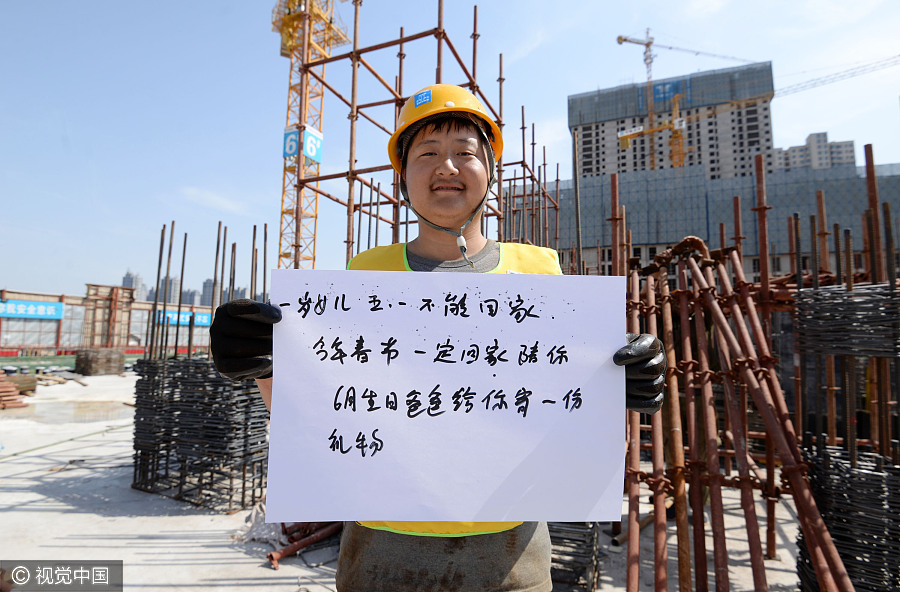 6#
6#
安全意识
一岁女儿 五.一不能回家.
今年春节一定回家陪你
6月生日爸爸给你寄一份
礼物
© 视觉中国